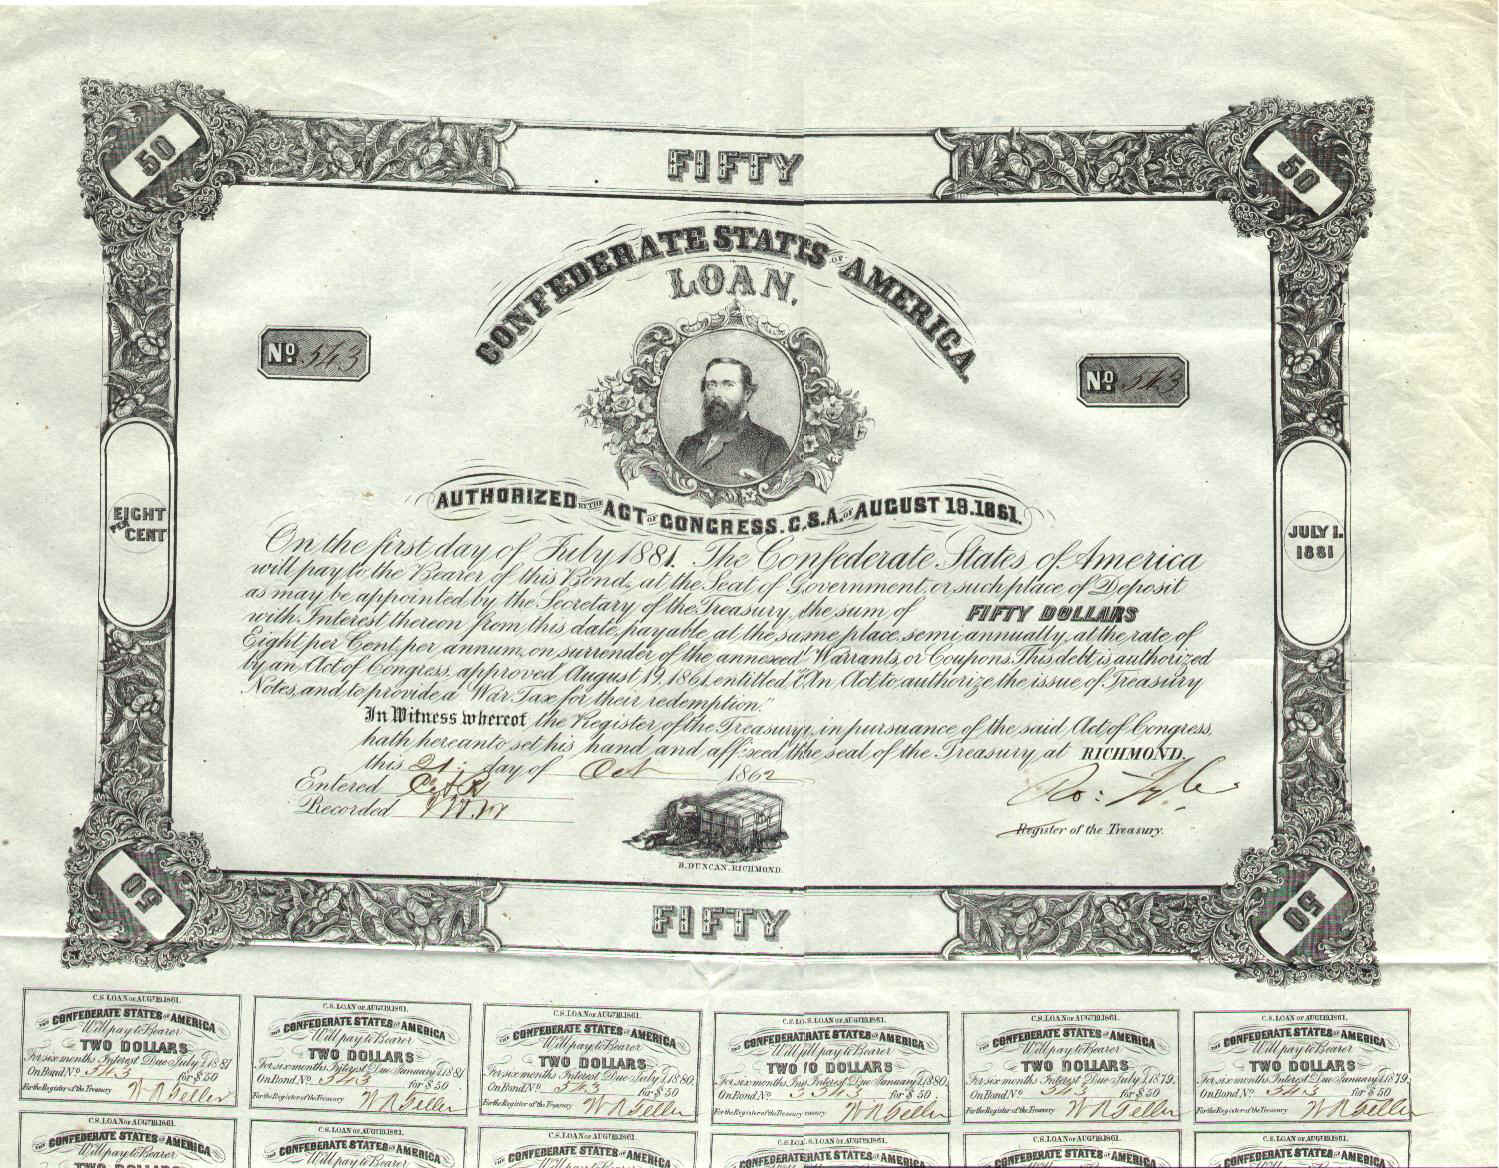 50
FIFTY
50
CONFEDERATE STATES OF AMERICA
LOAN,
No. 543
No. 543
AUTHORIZED BY THE ACT OF CONGRESS. C.S.A. OF AUGUST 19.1861.
EIGHT
PER
CENT
JULY 1.
1881
On the first day of July 1881. The Confederate States of America
will pay to the Bearer of this Bond, at the Seat of Government, or such place of Deposit
as may be appointed by the Secretary of the Treasury, the sum of FIFTY DOLLARS
with Interest thereon from this date, payable, at the same place, semi annually, at the rate of
Eight per Cent, per annum, on surrender of the annexed Warrants, or Coupons. This debt is authorized
by an Act of Congress, approved August 19, 1861, entitled, "An Act to authorize the issue of Treasury
Notes, and to provide a War Tax for their redemption."
In Witness whereof the Register of the Treasury, in pursuance of the said Act of Congress,
hath hereunto set his hand and affixed the seal of the Treasury at RICHMOND.
this 21 day of Oct 1862
Entered
Recorded
Ro: Tyler
Register of the Treasury.
B. DUNCAN, RICHMOND.
50
FIFTY
50
C.S. LOAN OF AUG. 19. 1861.
THE CONFEDERATE STATES OF AMERICA
Will pay to Bearer
TWO DOLLARS
For six months Interest Due July 1, 1881
On Bond No. 543 for $50
For the Register of the Treasury
C.S. LOAN OF AUG. 19. 1861.
THE CONFEDERATE STATES OF AMERICA
Will pay to Bearer
TWO DOLLARS
For six months Interest Due January 1, 1881
On Bond No. 543 for $50
For the Register of the Treasury
C.S. LOAN OF AUG. 19. 1861.
THE CONFEDERATE STATES OF AMERICA
Will pay to Bearer
TWO DOLLARS
For six months Interest Due July 1, 1880.
On Bond No. 543 for $50
For the Register of the Treasury
C.S. LOAN OF AUG. 19. 1861.
THE CONFEDERATE STATES OF AMERICA
Will pay to Bearer
TWO DOLLARS
For six months Interest Due January 1, 1880.
On Bond No. 543 for $50
For the Register of the Treasury
C.S. LOAN OF AUG. 19. 1861.
THE CONFEDERATE STATES OF AMERICA
Will pay to Bearer
TWO DOLLARS
For six months Interest Due July 1, 1879.
On Bond No. 543 for $50
For the Register of the Treasury
C.S. LOAN OF AUG. 19. 1861.
THE CONFEDERATE STATES OF AMERICA
Will pay to Bearer
TWO DOLLARS
For six months Interest Due January 1, 1879.
On Bond No. 543 for $50
For the Register of the Treasury
C.S. LOAN OF AUG. 19. 1861.
THE CONFEDERATE STATES OF AMERICA
Will pay to Bearer
TWO DOLLARS
C.S. LOAN OF AUG. 19. 1861.
THE CONFEDERATE STATES OF AMERICA
Will pay to Bearer
C.S. LOAN OF AUG. 19. 1861.
THE CONFEDERATE STATES OF AMERICA
Will pay to Bearer
C.S. LOAN OF AUG. 19. 1861.
CONFEDERATE STATES OF AMERICA
C.S. LOAN OF AUG. 19. 1861.
CONFEDERATE STATES OF AMERICA
C.S. LOAN OF AUG. 19. 1861.
CONFEDERATE STATES OF AMERICA